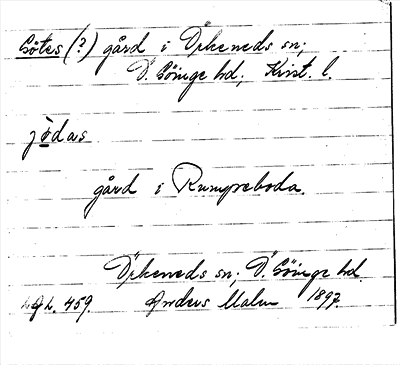 Götes (?) gård i Örkeneds sn;
Ö. Göinge hd; Krist. l.
jödas
gård i Rumpeboda.
Örkeneds sn; Ö. Göinge hd.
459. Anders Malm 1897.